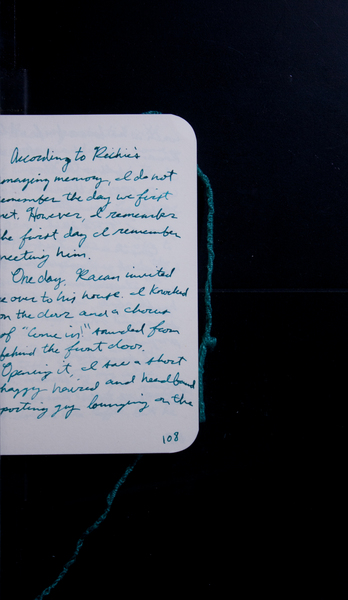 According to Richie's
maging memory, I do not
emember the day we first
et. However, I remember
he first day I remember
meeting him.
One day, Raean invited
e over to his house. I knocked
on the door and a chorus
of "Come in!" sounded from
behind the front door.
Opening it, I saw a short
haggy haired and headband
porting guy lounging on the
108